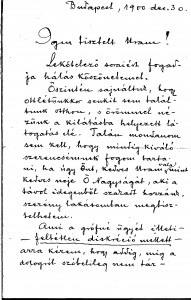 Budapest, 1900 dec. 30.
Igen tisztelt Uram!
Lekötelező soraiért fogad-
ja hálás köszönetemet.
Őszintén sajnáltuk, hogy
ottlétünkkor senkit sem talál-
tunk otthon, s örömmel né-
zünk a kilátásba helyezett lá-
togatás elé. Talán mondanom
sem kell, hogy mindig kivá-
szerencsémnek fogom tarta-
ni, ha úgy Önt, kedves Uram, mint
kedves neje Ő Nagyságát, aki a
távol idegenből szakadt hozzánk,
szerény lakásomban megtisz-
telhetem.
Ami a grófné ügyét illeti
feltétlen diskréció mellett
arra kérem, hogy addig, míg a
dologról szóbelileg nem tár-